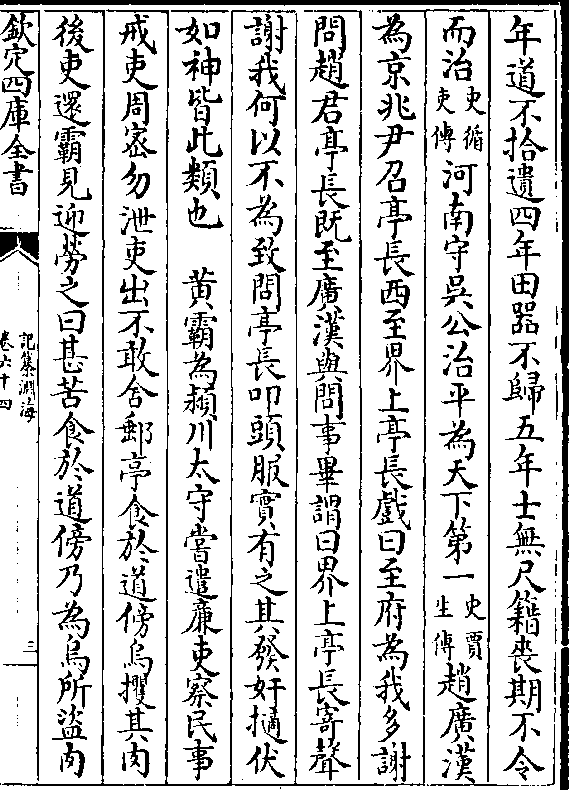 年道不拾遺四年田器不歸五年士無尺籍喪期不令
而治史循吏傳河南守吳公治平為天下第一史賈生傳趙廣漢
為京兆尹召亭長西至界上亭長戲曰至府為我多謝
問趙君亭長既至廣漢與問事畢謂曰界上亭長寄聲
謝我何以不為致問亭長叩頭服實有之其發奸擿伏
如神皆此類也　黄霸為潁川太守嘗遣廉吏察民事
戒吏周密勿泄吏出不敢舍郵亭食於道傍烏攫其肉
後吏還霸見迎勞之曰甚苦食於道傍乃為烏所盜肉
欽定四庫全書
記纂淵海
卷六十四
三